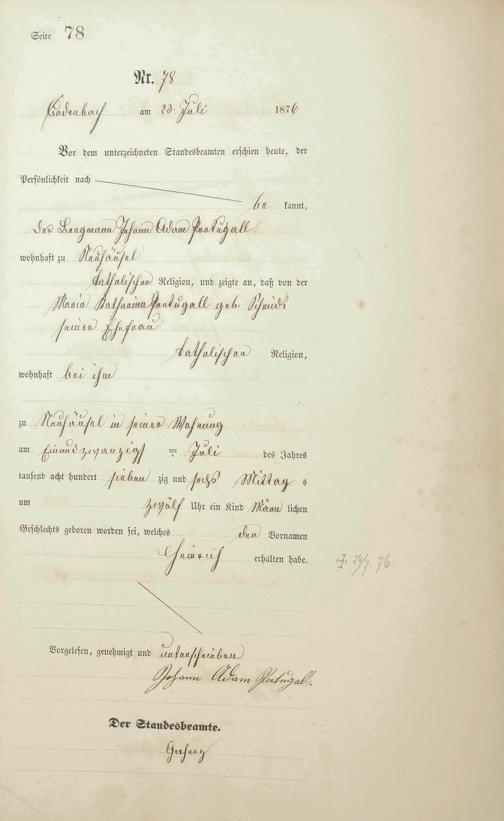 Seite 78
Nr. 78
Cadenbach am 23. Juli 1876
Vor dem unterzeichneten Standesbeamten erschien heute, der
Persönlichkeit nach
be kannt,
der Bergmann Johann Adam Portugall
wohnhaft zu Neuhäusel
katholischer Religion, und zeigte an, daß von der
Maria Katharina Portugall geb. Schmidt
seiner Ehefrau
katholischer Religion,
wohnhaft bei ihm
zu Neuhäusel in seiner Wohnung
am Einundzwanzigst ten Juli des Jahres
tausend acht hundert sieben zig und sechs Mittag s
um zwölf Uhr ein Kind Männ lichen
Geschlechts geboren worden sei, welches den Vornamen
Heinrich erhalten habe.
76.
Vorgelesen, genehmigt und unterschrieben
Johann Adam Portugall.
Der Standesbeamte.